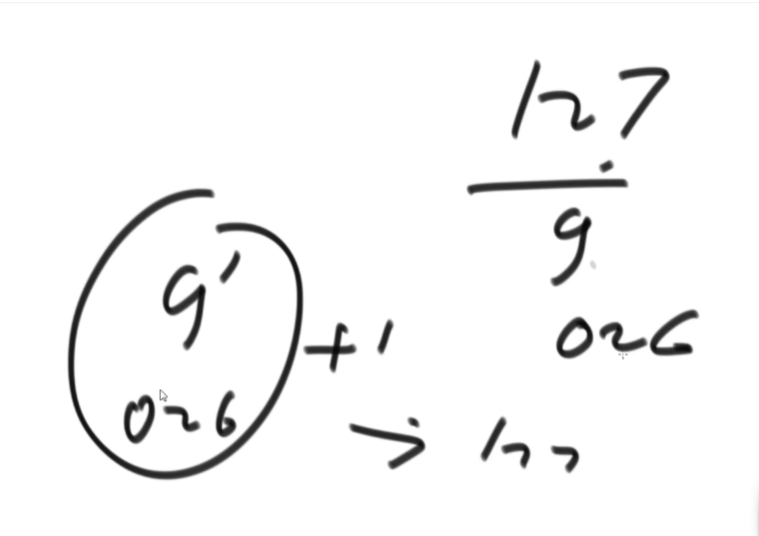 127
9
026
9'
026
+1
→ 127